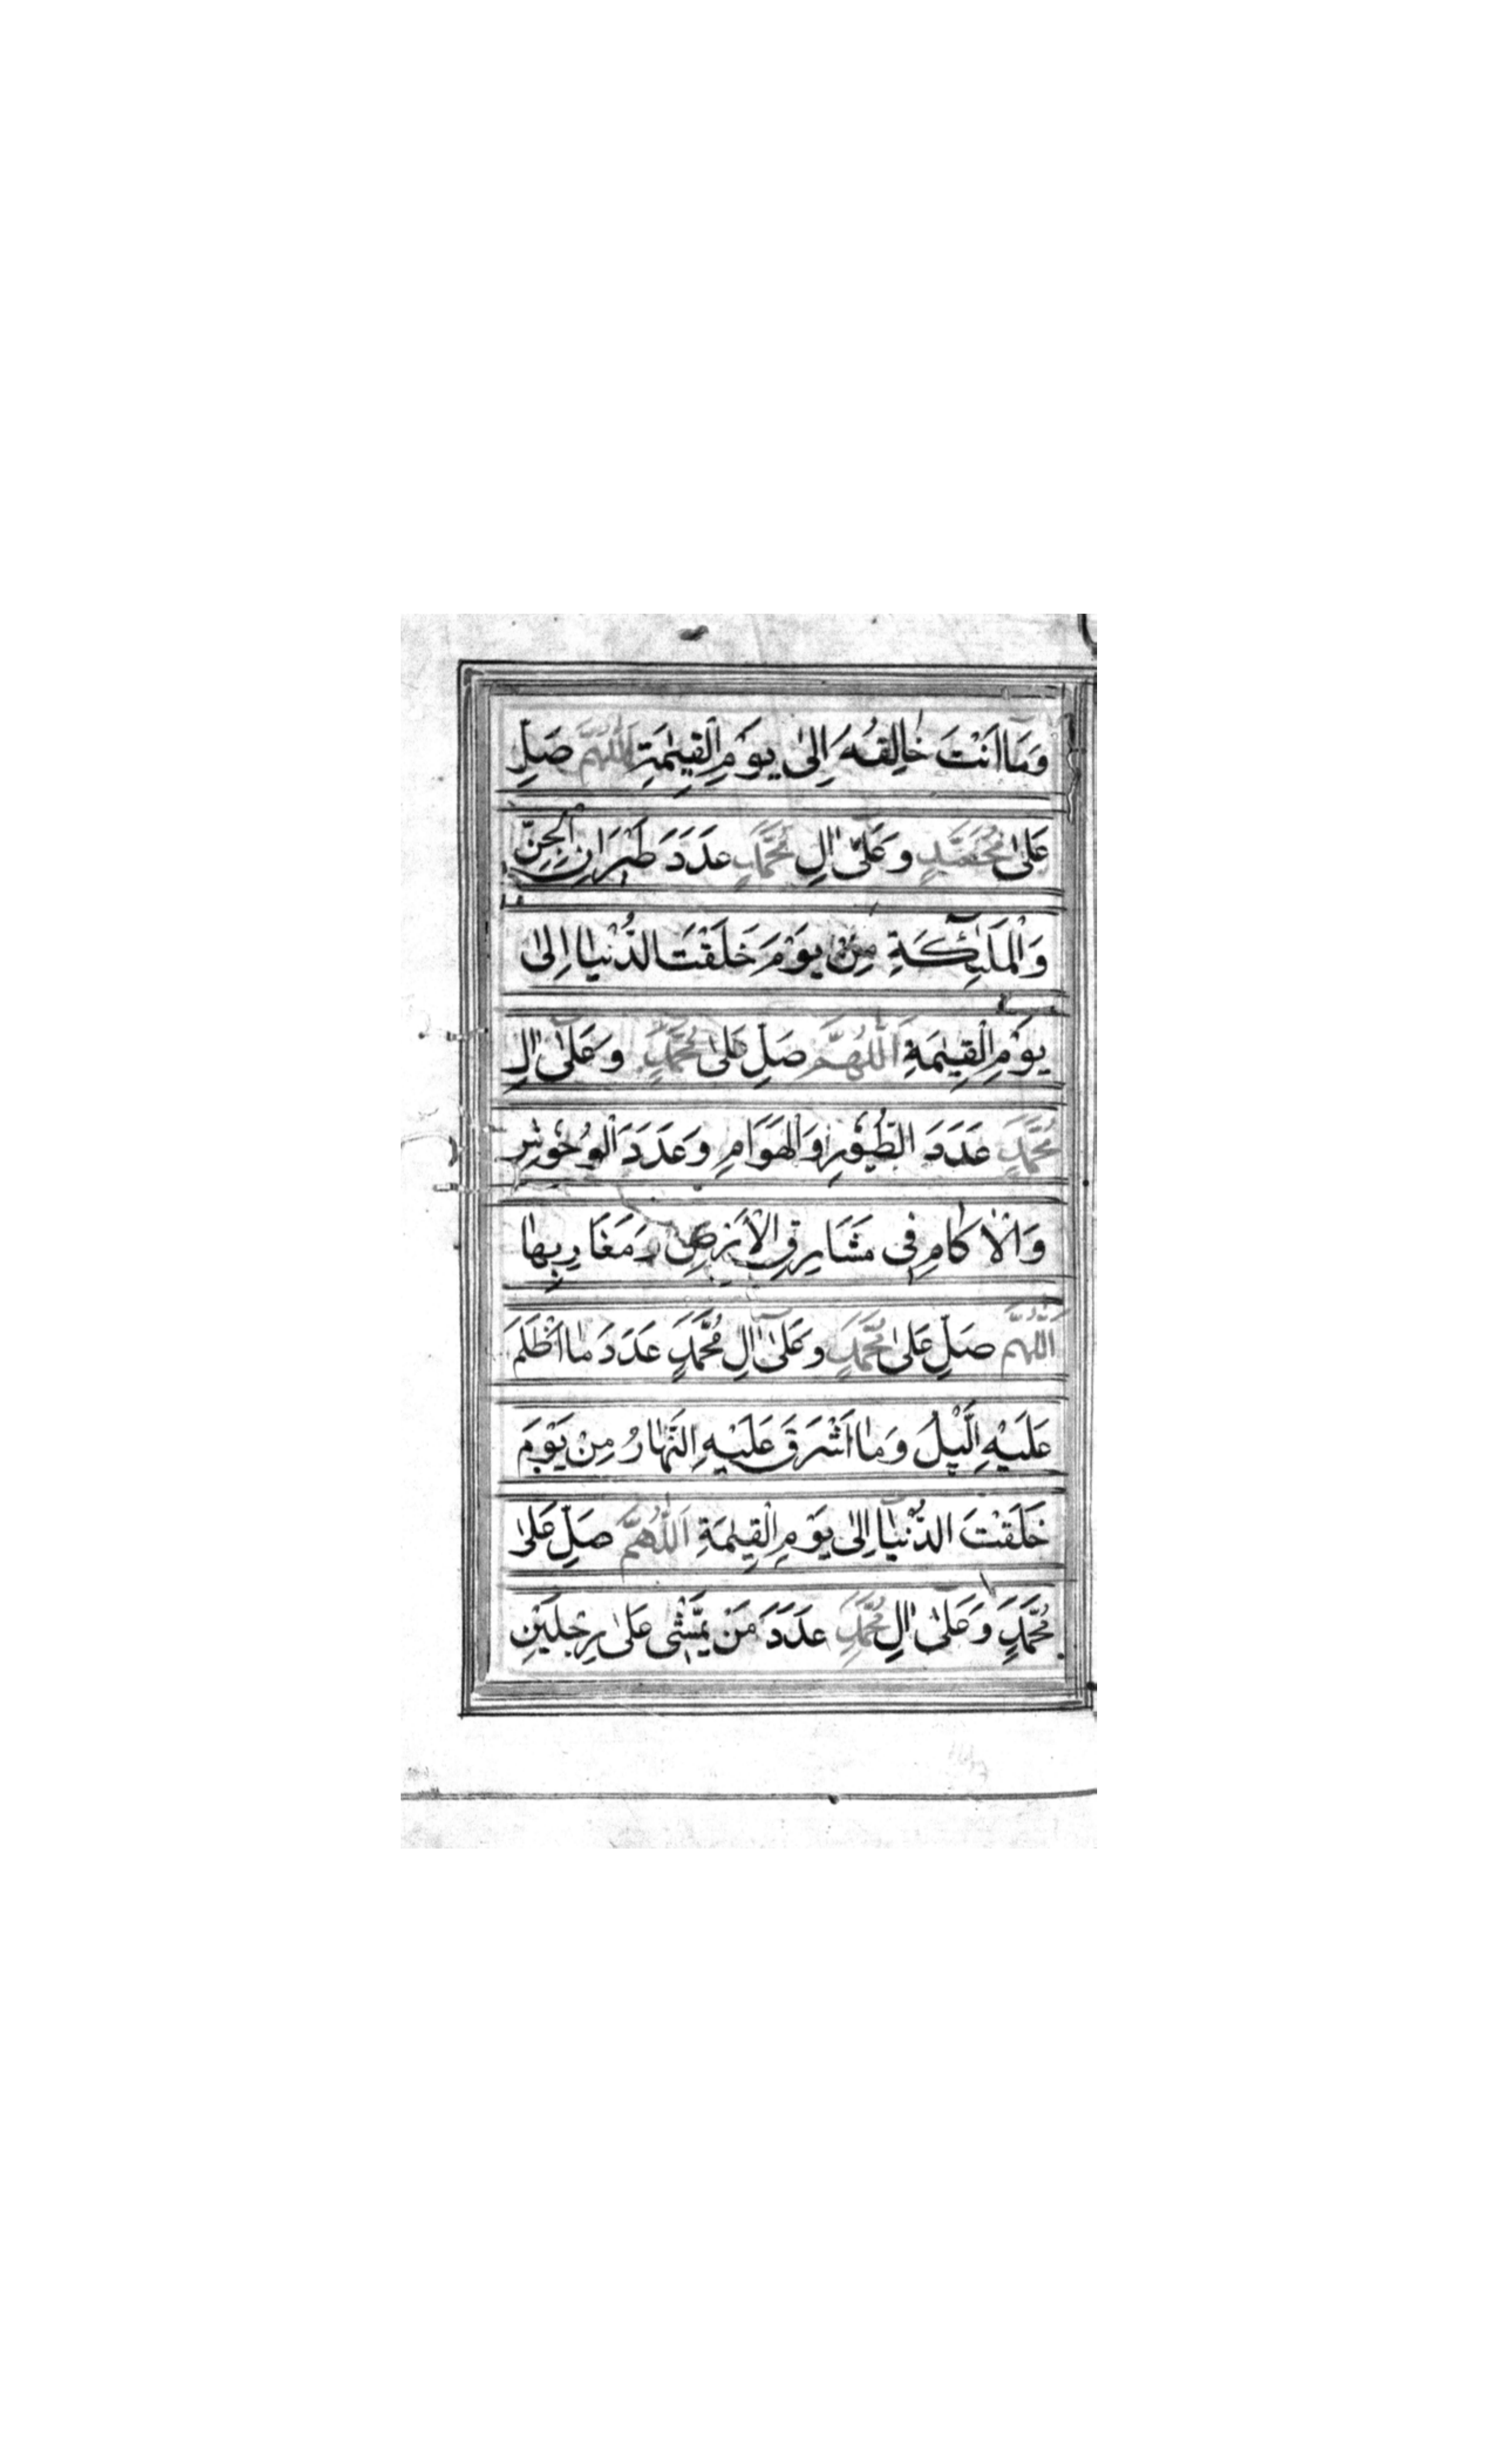 وَمَا اَنْتَ خٰالِقُهُ اِلىٰ يَوْمِ الْقِيٰمَةِ اَللّٰهُمَّ صَلِّ
عَلىٰ مُحَمَّدٍ وَعَلىٰٓ اٰلِ مُحَمَّدٍ عَدَدَ طَيَرَانِ الْجِنِّ
وَالْمَلٰٓئِكَةِ مِنْ يَوْمَ خَلَقْتَ الدُّنْيٰا اِلىٰ
يَوْمِ الْقِيٰمَةِ اَللّٰهُمَّ صَلِّ عَلىٰ مُحَمَّدٍ وَعَلىٰٓ اٰلِ
مُحَمَّدٍ عَدَدَ الطُّيُوْرِ وَالْهَوَامِ وَعَدَدَ الْوُحُوْشِ
وَالْاٰكَامِ فِى مَشَارِقِ الْاَرْضِ وَمَغَارِبِهٰا
اَللّٰهُمَّ صَلِّ عَلىٰ مُحَمَّدٍ وَعَلىٰٓ اٰلِ مُحَمَّدٍ عَدَدَ مٰا اَظْلَمَ
عَلَيْهِ الَّيْلُ وَمٰا اَشْرَقَ عَلَيْهِ النَّهٰارُ مِنْ يَوْمَ
خَلَقْتَ الدُّنْيٰا اِلىٰ يَوْمِ الْقِيٰمَةِ اَللّٰهُمَّ صَلِّ عَلىٰ
مُحَمَّدٍ وَعَلىٰٓ اٰلِ مُحَمَّدٍ عَدَدَ مَنْ يَّمْشِى عَلىٰ رِجْلَيْنِ